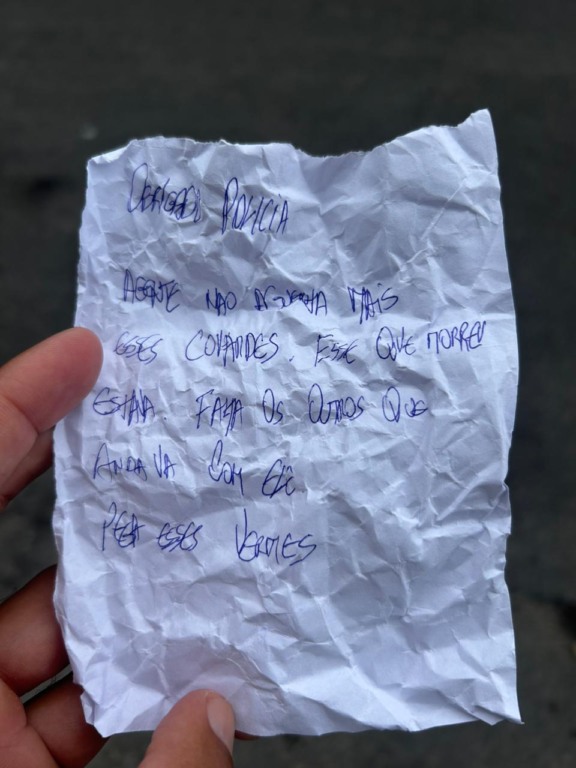 POLICIA
AGENTE NAO AGUENTA MAIS
ESSES COVARDES. ESSE QUE MORREU
ESTAVA. FALTA OS OUTROS QUE
ANDAVA COM ELE
PEGA ESSES VERMES